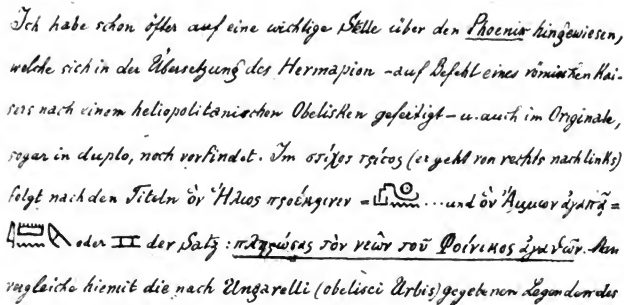 Ich habe schon öfter auf eine wichtige Stelle über den Phoenix hingewiesen,
welche sich in der Übersetzung des Hermapion - auf Befehl eines römischen Kai-
sers nach einem heliopolitanischen Obelisken gefertigt - u. auch im Originale,
sogar in duplo, noch vorfindet. Im στίχος τρίτος (er geht von rechts nach links)
folgt nach den Titeln ὃν Ἥλιος προέκρινεν = ... und ὃν Ἄμμων ἀγαπᾷ =
oder der Satz: πληρώσας τὸν νεὼν τοῦ Φοίνικος ἀγαθῶν. Man
vergleiche hiemit die nach Ungarelli (obelisci Urbis) gegebenen Legenden des